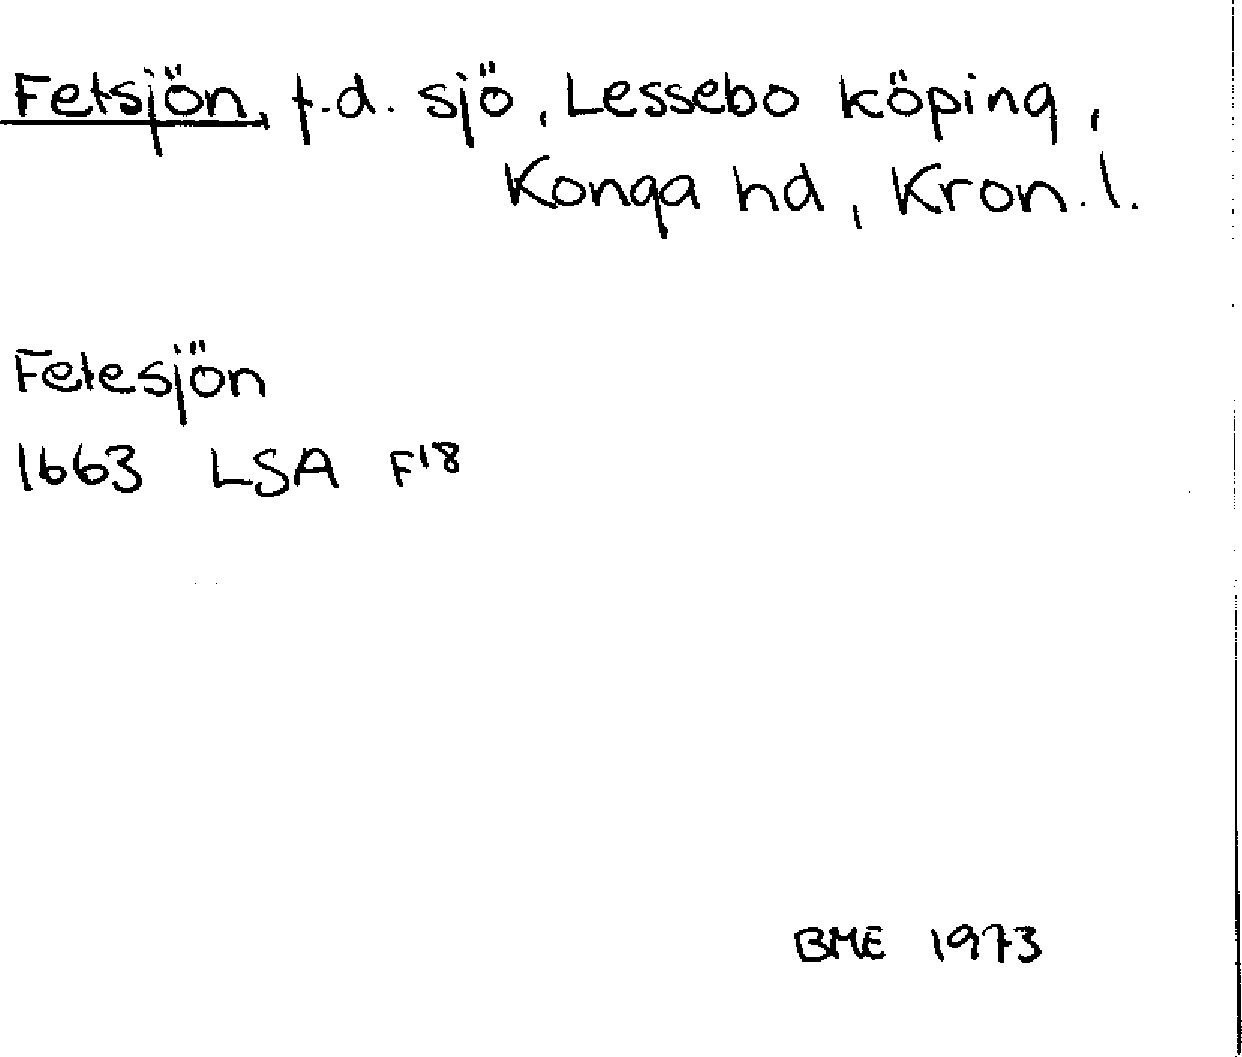 Fetsjön, f.d. sjö, Lessebo köping,
Konga hd, Kron. l.
Fetesjön
1663 LSA F18
BME 1973